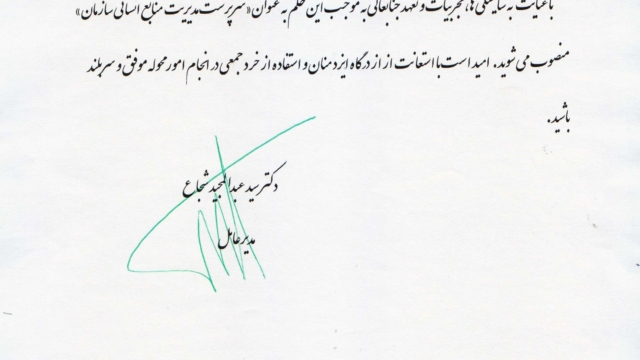 باعنایت به شایستگی ها، تجربیات و تعهد جنابعالی به موجب این حکم به عنوان «سرپرست مدیریت منابع انسانی سازمان»
منصوب می شوید. امید است با استعانت از از درگاه ایزد منان و استفاده از خرد جمعی در انجام امور محوله موفق و سربلند
باشید.
دکتر سید عبدالمجید شجاع
مدیرعامل